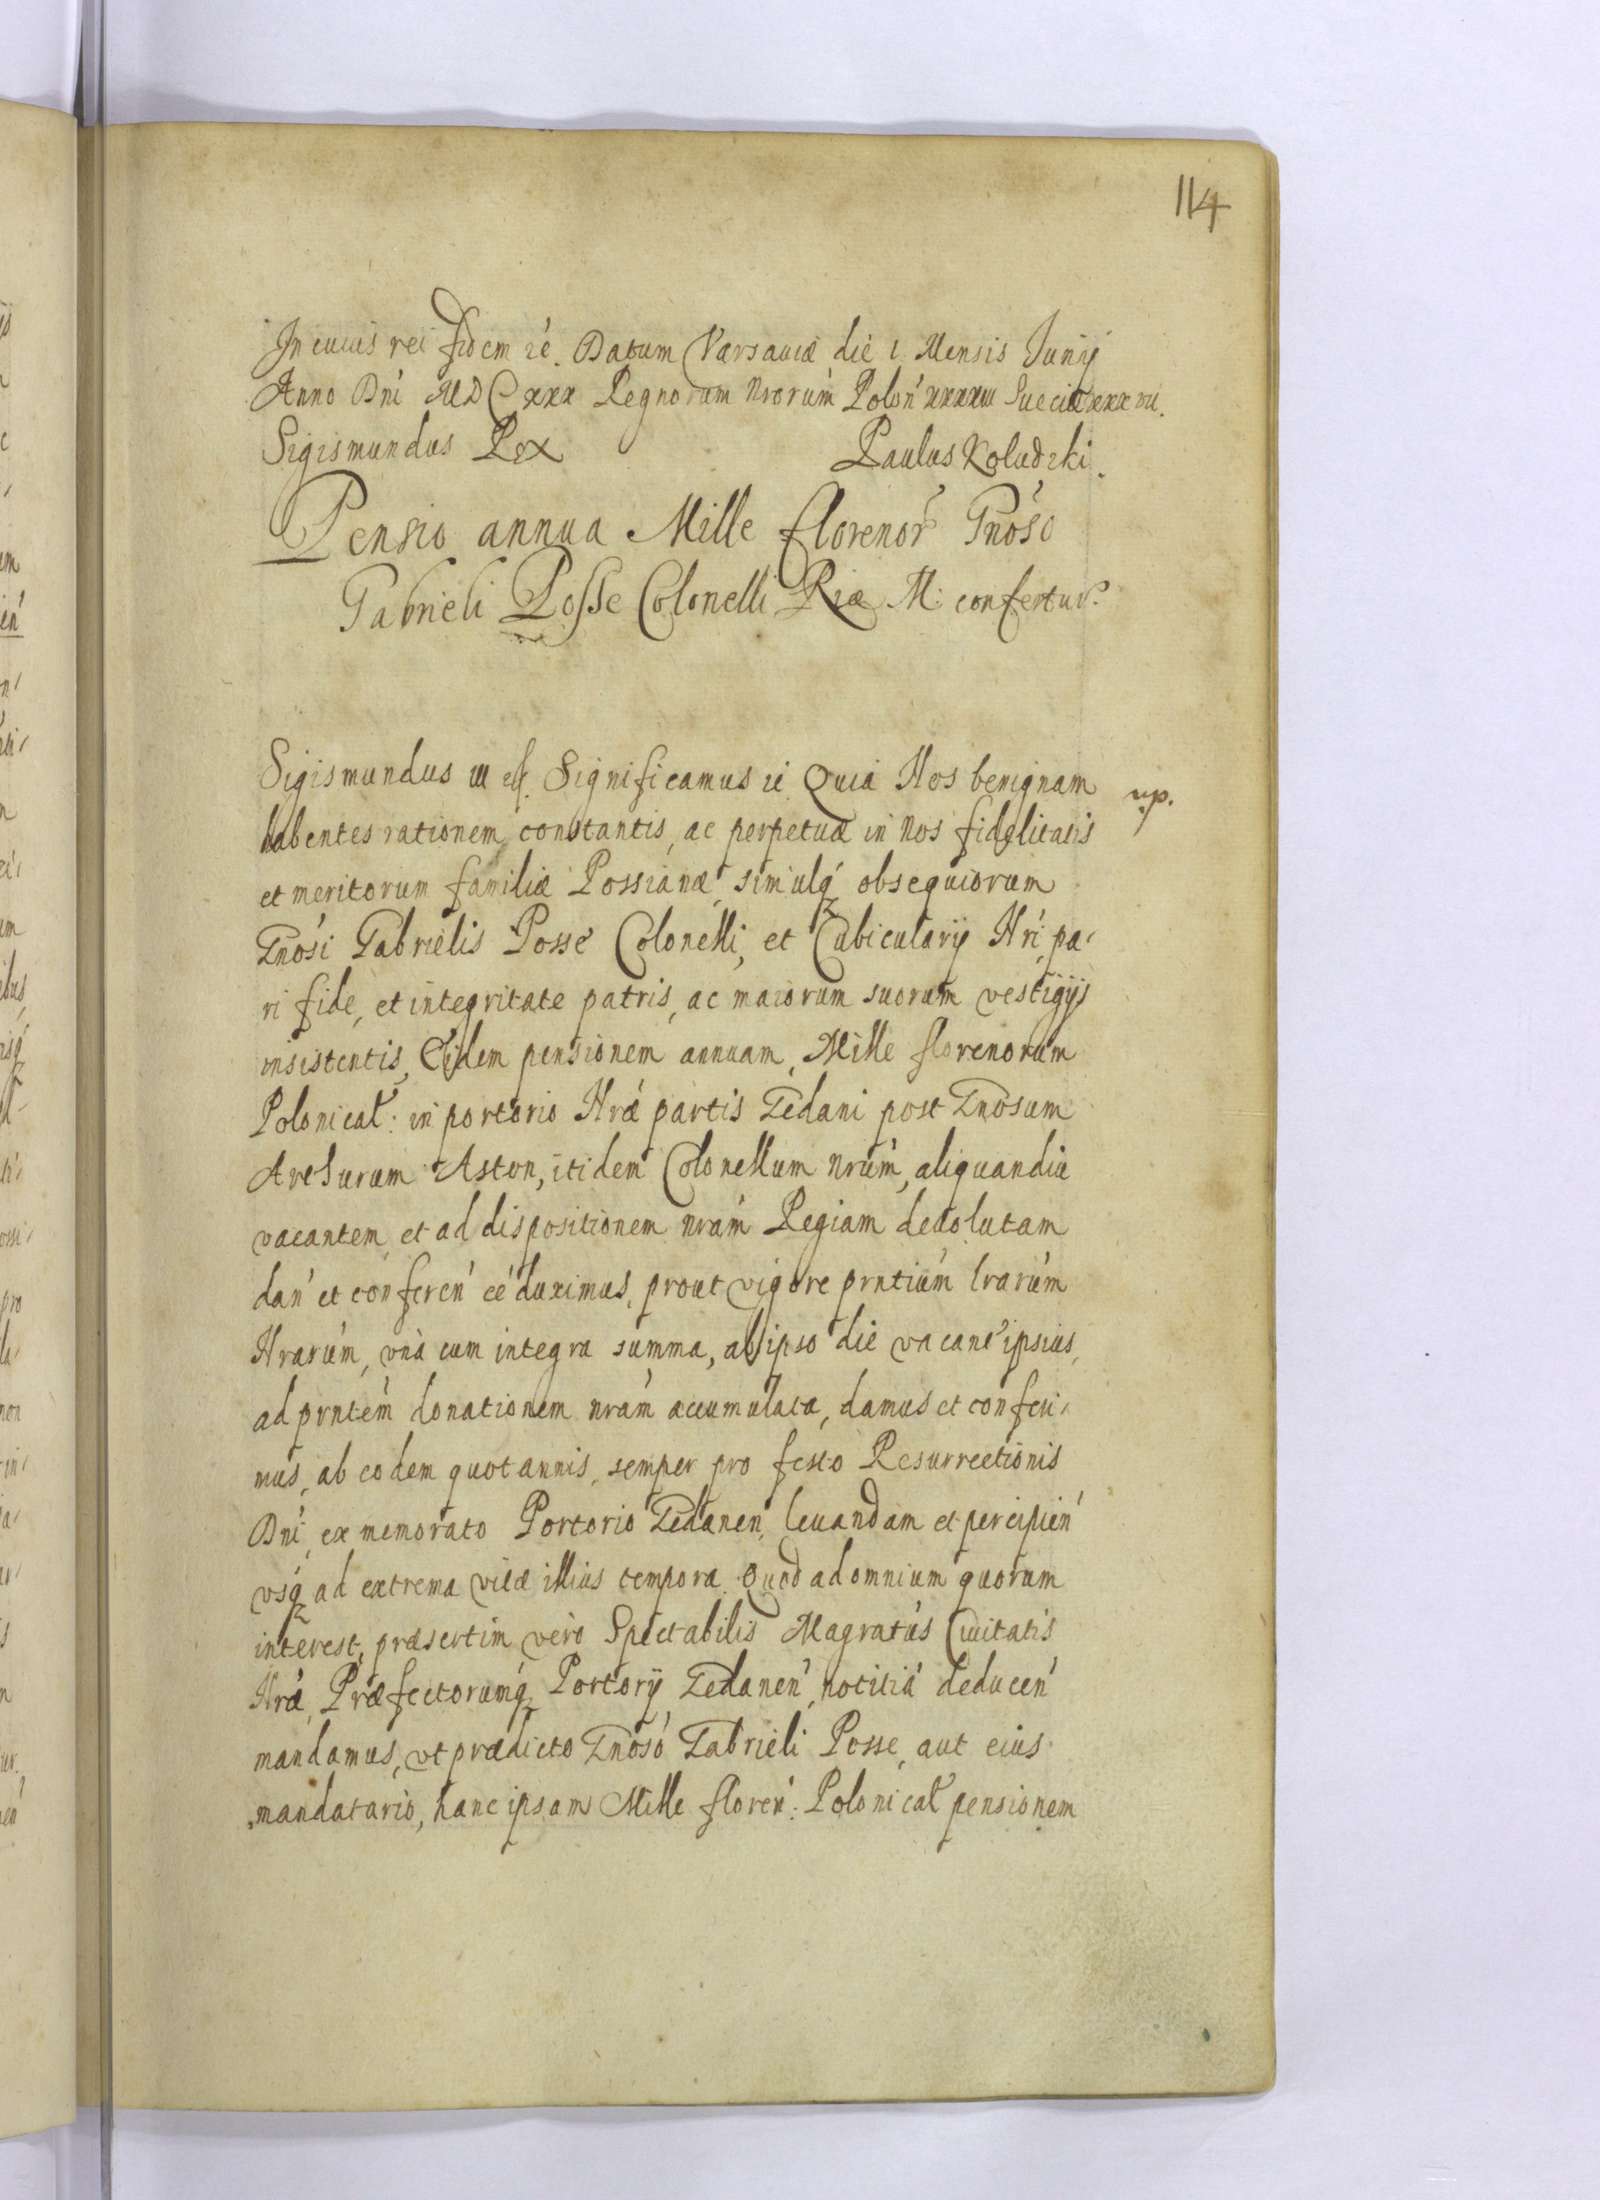 114
In cuius rei fidem ꝛc. Datum Varsaviæ die 1 Mensis Junij
Anno Dnĩ MDCxxx Regnorum Nrorum̃ Polon̕ xxxxiii Sueciæ xxxvii.
Sigismundus Rex Paulus Koludzki.
Pensio annua Mille Florenor̃ Gnóso
Gabrieli Posse Colonelli Riæ M: confertur.
Sigismundus III etc. Significamus ꝛc Quia Nos benignam
habentes rationem constantis, ac perpetuæ in Nos fidelitatis
et meritorum familiæ Possianæ, simulq́ obsequiorum
Gnósi Gabrielis Posse Colonelli, et Cubicularij Nrí, pa-
ri fide, et integritate patris, ac maiorum suorum vestigijs
insistentis, Eidem pensionem annuam, Mille florenorum
Polonical̃: in portorio Nrǽ partis Gedani post Gnósum
Arthurum Aston, itidem Colonellum nrum̃, aliquandiu
vacantem et ad dispositionem nram̃ Regiam devolutam
dan̕ et conferen̕ eé duximus, prout vigore prntium̃ lrarum̃
Nrarum̃, unà cum integra summa, ab ipso die vacanr̃ ipsius,
ad prntem̃ donationem nram̃ accumulata, damus et conferi-
mus, ab eodem quotannis, semper pro festo Resurrectionis
Dnĩ, ex memorato Portorio Gedanen̕, levandam et percipien̕
vsq́ ad extrema vitæ illius tempora. Quod ad omnium quorum
interest, præsertim verò Spectabilis Magratús Civitatis
Nrǽ, Præfectorumq́ Portorij Gedanen̕, notitiã deducen̕
mandamus, vt prædicto Gnóso Gabrieli Posse, aut eius
mandatario, hanc ipsam Mille floren̕: Polonical̃ pensionem